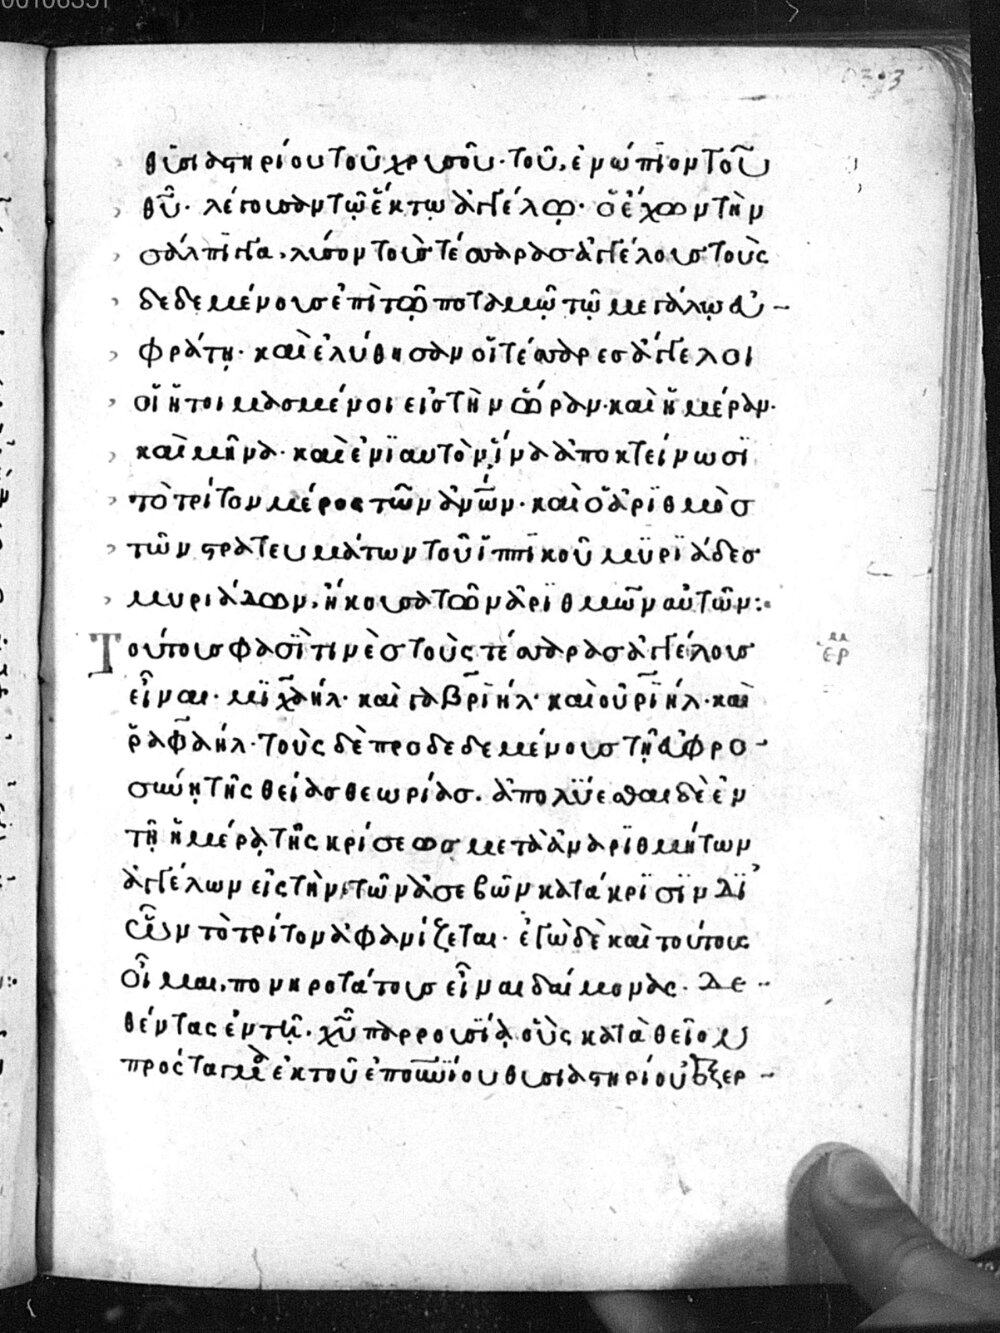 θυσιαστηρίου τοῦ χρυσοῦ· τοῦ, ἐνώπιον τοῦ
θῦ· λέγουσαν τῷ ἕκτῳ ἀγγέλῳ· ὁ ἔχων τὴν
σάλπιγγα, λῦσον τοὺς τέσσαρας ἀγγέλους τοὺς
δεδεμένους ἐπὶ τῷ ποταμῷ τῷ μεγάλῳ εὐ-
φράτῃ· καὶ ἐλύθησαν οἱ τέσσαρες ἄγγελοι
οἱ ἡτοιμασμένοι εἰς τὴν ὥραν· καὶ ἡμέραν·
καὶ μῆνα· καὶ ἐνϊαυτὸν ἵνα ἀποκτείνωσϊ
τὸ τρίτον μέρος τῶν ἀνῶν· καὶ ὁ ἀρϊθμὸσ
τῶν στρατευμάτων τοῦ ἱππϊκοῦ μϋρϊάδεσ
μυριάδων, ἤκουσα τὸν ἀρϊθμὸν αὐτῶν:·
Τούτους φασΐ τινὲσ τοὺς τέσσαρασ ἀγγέλους
εἶναι· μϊχαήλ· καὶ γαβρϊήλ· καὶ οὐρϊήλ· καὶ
ῥαφαήλ· τοὺς δὲ προδεδεμένους τῇ εὐφρο-
σύνῃ τῆς θείασ θεωρίασ. ἀπολϋέσθαι δὲ ἐν
τῇ ἡμέρᾳ τῆς κρίσεωσ μετὰ ἀναρϊθμήτων
ἀγγέλων εἰς τὴν τῶν ἀσεβῶν κατάκρϊσϊν δϊ'
ὧν τὸ τρίτον ἀφανίζεται· ἐγὼ δὲ καὶ τούτους
οἶμαι, πονηροτάτους εἶναι δαίμονας. δε-
θέντας ἐν τῇ· χῦ παρρουσίᾳ οὓς κατὰ θεῖον
πρόσταγμα ἐκ τοῦ ἐπουνΐου θυσιαστηρίου ἐξερ-